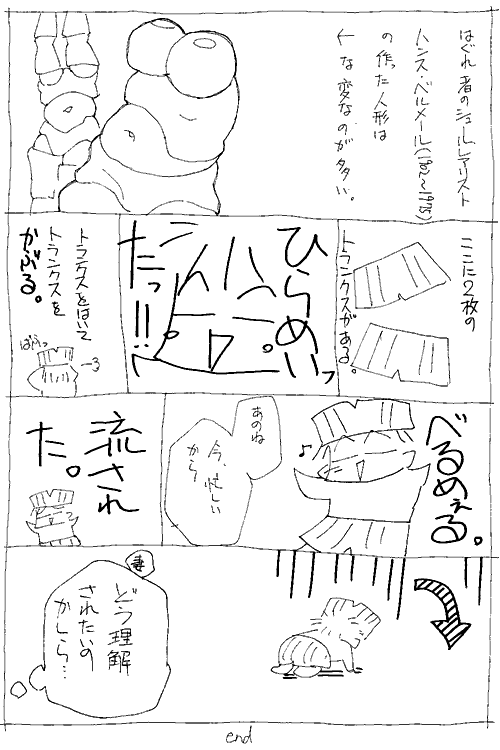 はぐれ者のシュールレアリスト
ハンス・ベルメール(1902~1975)
の作った人形は
←な変なのが多い。
ここに2枚の
トランクスがある。
ひらめいっ
たっ!!
トランクスをはいて
トランクスを
かぶる。
ばふっ
べるめえる。
♪
あのね
今、忙しい
から
流され
た。
妻
どう理解
されたいの
かしら…
end